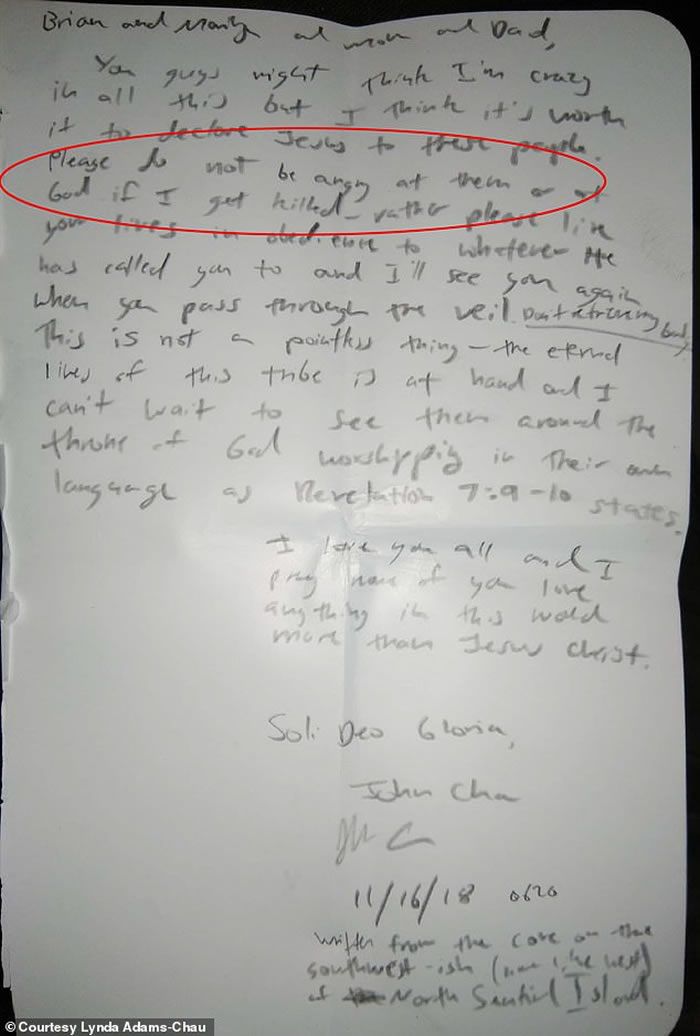 Brian and Marilyn and mom and Dad,
You guys might think I'm crazy
in all this but I think it's worth
it to declare Jesus to these people.
Please do not be angry at them or at
God if I get killed - rather please live
your lives in obedience to whatever He
has called you to and I'll see you again
when you pass through the veil. Don't retrieve my body
This is not a pointless thing - the eternal
lives of this tribe is at hand and I
can't wait to see them around the
throne of God worshipping in their own
language as Revelation 7:9-10 states.
I love you all and I
pray none of you love
anything in this world
more than Jesus Christ.
Soli Deo Gloria,
John Chau
11/16/18 0620
Written from the cove on the
southwest-ish (more like west)
of North Sentinel Island.
© Courtesy Lynda Adams-Chau